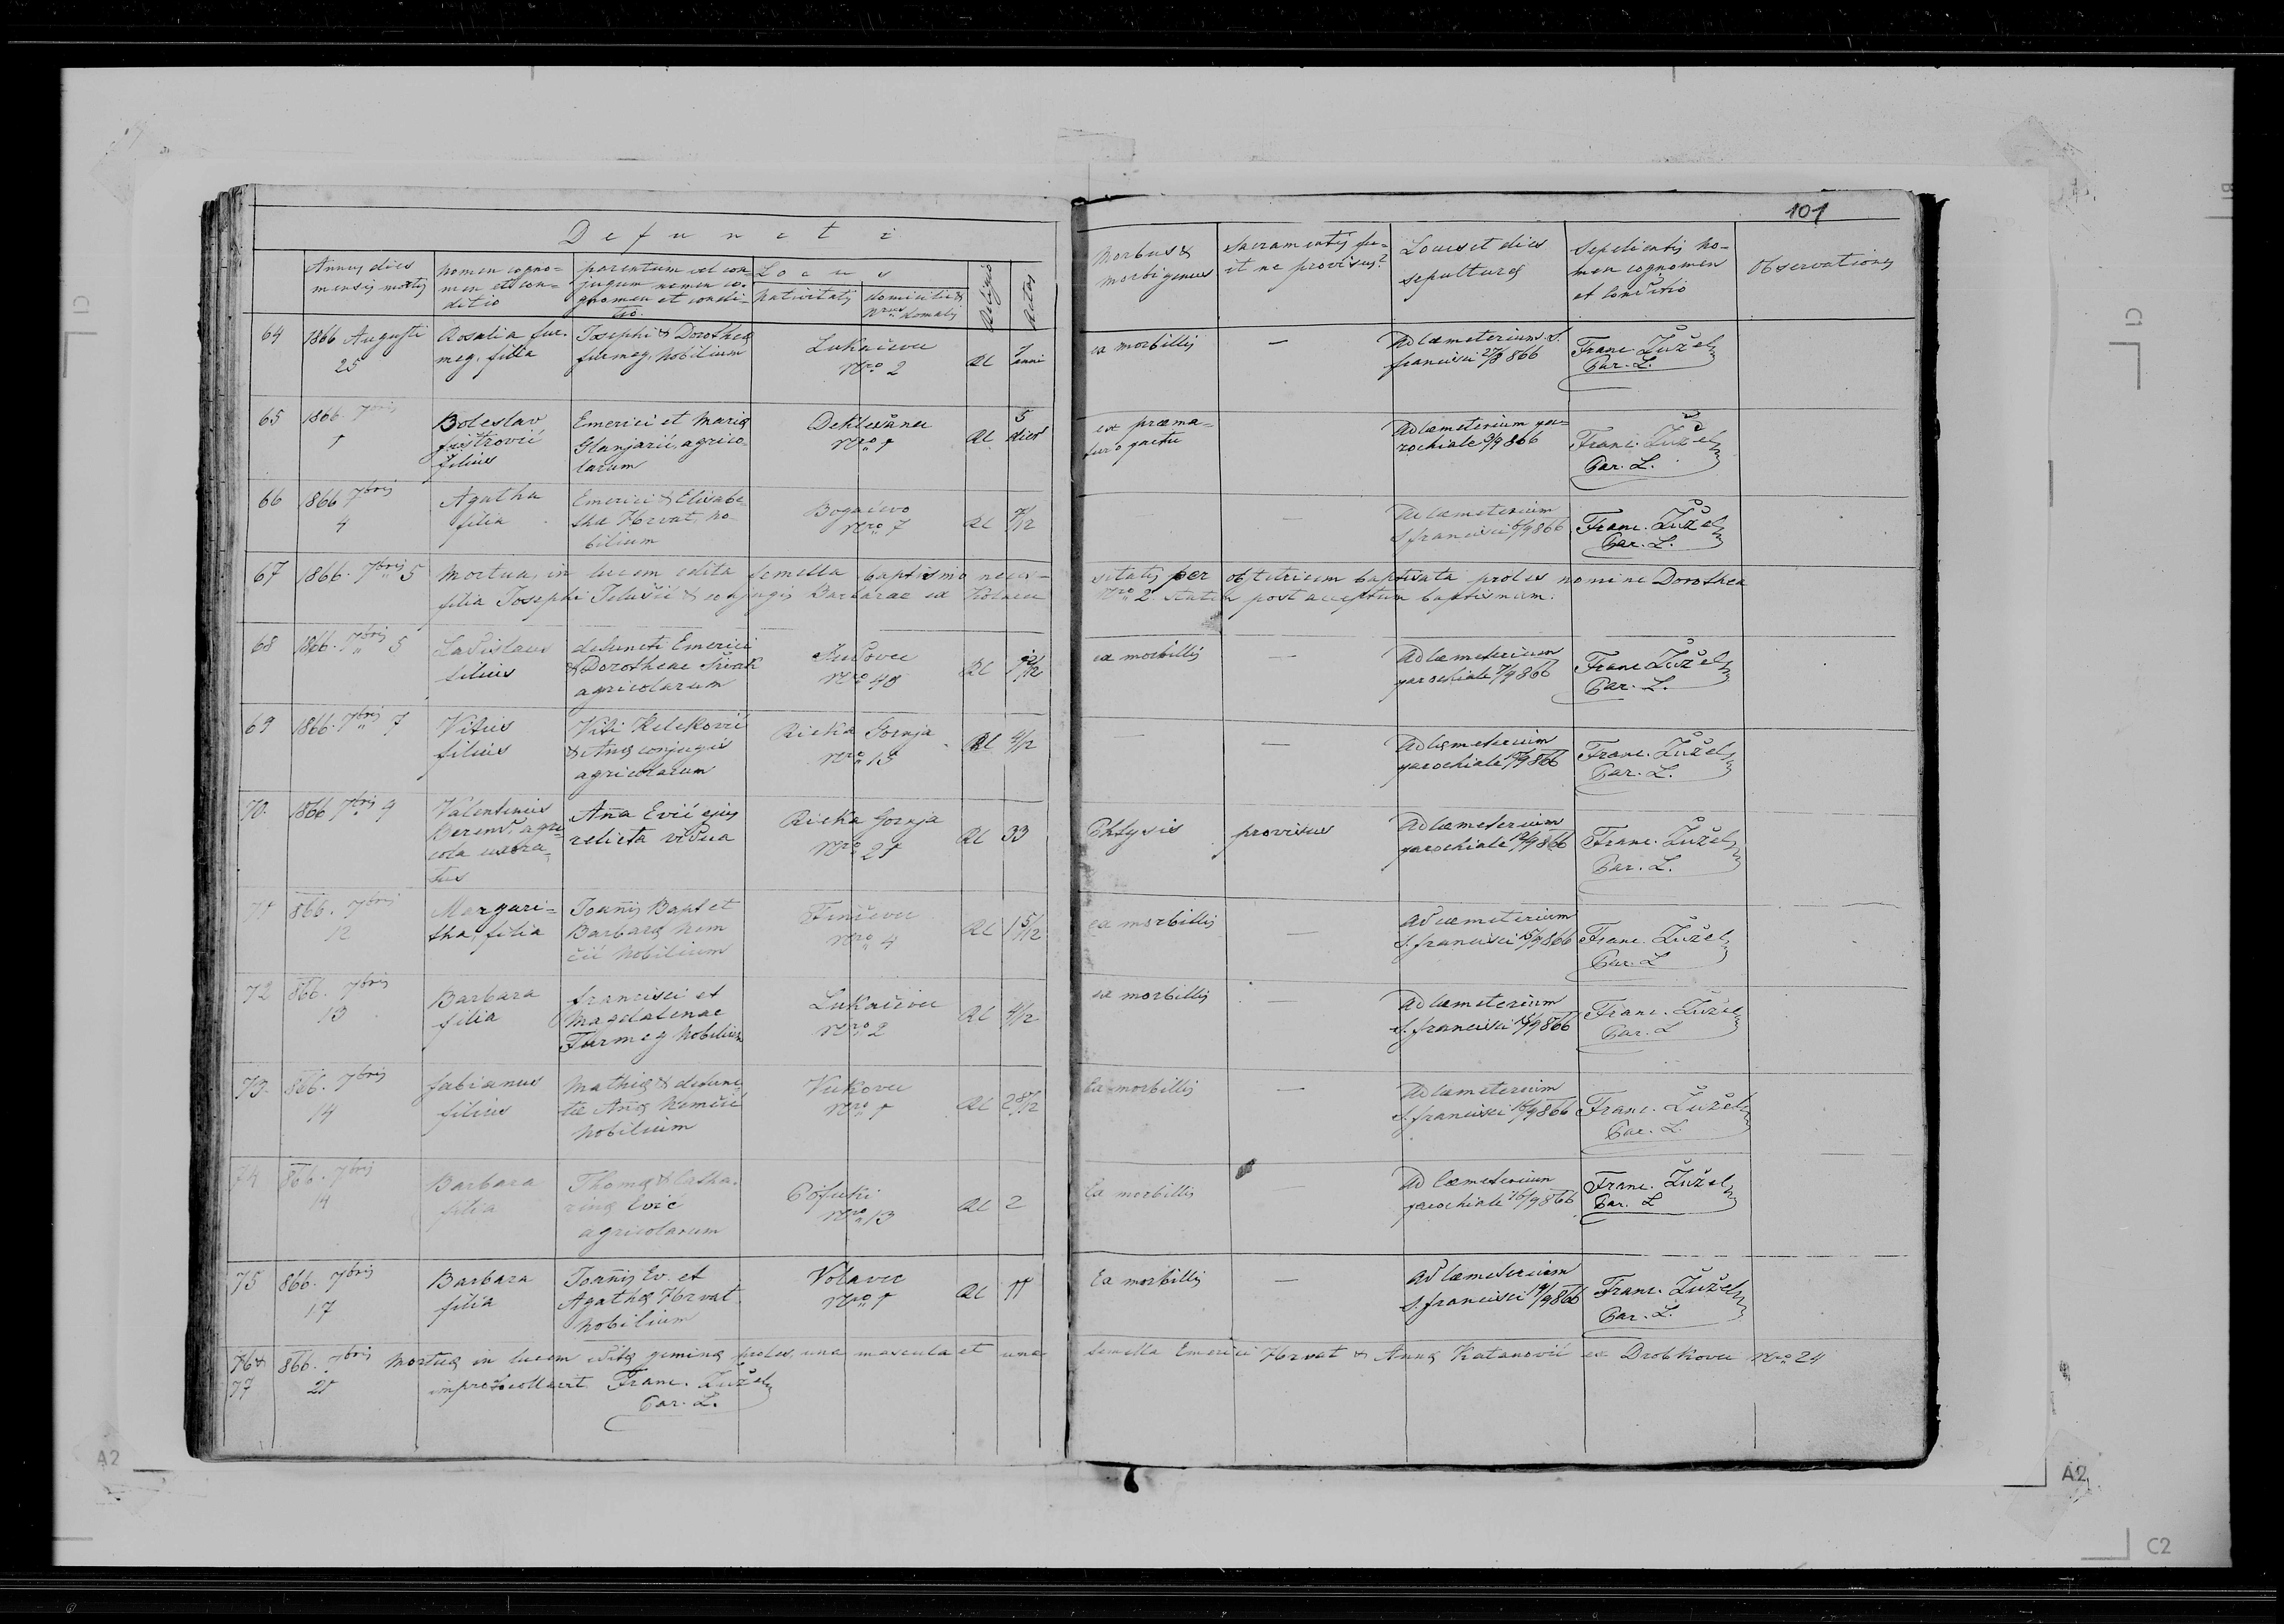 101
Defuncti
Annus dies
mensis mortis
nomen cogno=
men et con=
ditio
parentum vel con=
jugum nomen co=
gnomen et condi=
tio.
Locus
nativitatis
domicilii &
Nrus domus
Religio
Aetas
Morbus &
morbi genus
Sacramentis fu=
it ne provisus?
Locus et dies
sepulturę
Sepelientis no=
men cognomen
et conditio
Observationes
64
1866 Augusti
25
Rosalia fur=
meg, filia
Josephi & Dorotheę
furmeg, nobilium
Lukačevec
Nro 2
RC
7 anni
ex morbillis
—
Ad cœmeterium S.
francisci 27/8 866
Franc. Žužel
Par. L.
65
1866. 7bris
1
Boleslav
fištrović
filius
Emerici et Marię
Glanjarić, agrico=
larum
Dektešanec
Nro 1
RC
5
dies
ex præma=
turo partu
Ad cœmeterium pa=
rochiale 3/9 866
Franc. Žužel
Par. L.
66
866 7bris
4
Agatha
filia
Emerici & Elisabe=
tha Horvat, no=
bilium
Bogačevo
Nro 7
RC
7/12
—
Ad cœmeterium
S. francisci 6/9 866
Franc. Žužel
Par. L.
67
1866. 7bris 5
Mortua, in lucem edita femella baptismo neces=
sitatis per obstetricem baptisata proles nomine Dorothea
filia Josephi Telušić & conjugis Barbarae ex Kolarec
Nro 2. statim post acceptum baptismum.
68
1866. 7bris 5
Ladislaus
filius
defuncti Emerici
& Dorotheae Širak
agricolarum
Nro 40
RC
ex morbillis
—
Ad cœmeterium
parochiale 7/9 866
Franc Žužel
Par. L.
69
1866. 7bris 7
Vitus
filius
Viti Keleković
& Anę conjugis
agricolarum
Rieka Gornja
Nro 13
RC
4/12
—
—
Ad cœmeterium
parochiale 10/9 866
Franc. Žužel
Par. L.
70.
1866 7bris 9
Valentinus
Berend, agri=
cola uxora=
tus
Aña Ević ejus
relicta vidua
Rieka Gornja
Nro 21
RC
33
Phtysis
provisus
Ad cœmeterium
parochiale 12/9 866
Franc. Žužel
Par. L.
71
866. 7bris
12
Margari=
tha, filia
Joañis Bapt et
Barbarę Nem
čić nobilium
Finičevec
Nro 4
RC
1 5/12
ex morbillis
—
Ad cœmeterium
S. francisci 15/9 866
Franc. Žužel
Par. L
72
866. 7bris
13
Barbara
filia
francisci et
Magdalenae
Furmeg nobilium
Lukačevec
Nro 2
RC
4/12
ex morbillis
—
Ad cœmeterium
S. francisci 15/9 866
Franc. Žužel
Par. L
73.
866. 7bris
14
fabianus
filius
Mathię & defunc=
tæ Anę Nemčić
nobilium
Vukovec
Nro 1
RC
2 8/12
Ex morbillis
—
Ad cœmeterium
S. francisci 16/9 866
Franc. Žužel
Par. L.
74
866. 7bris
14
Barbara
filia
Thomę & Catha=
rinę Ević
agricolarum
Pofuki
Nro 13
RC
2
Ex morbillis
—
Ad Cœmeterium
parochiale 16/9 866
Franc. Žužel
Par. L
75
866. 7bris
17
Barbara
filia
Joañis Ev. et
Agathę Horvat
nobilium
Volavec
Nro 1
RC
11
Ex morbillis
—
Ad cœmeterium
S. francisci 19/9 866
Franc. Žužel
Par. L.
76 &
77
866. 7bris
21
Mortuę in lucem editę geminę proles, una mascula et una
femella Emerici Horvat & Annę Katanović ex Drobkovec Nro 24
improtocollavit Franc. Žužel
Par. L.
A2
A2
C1
C2